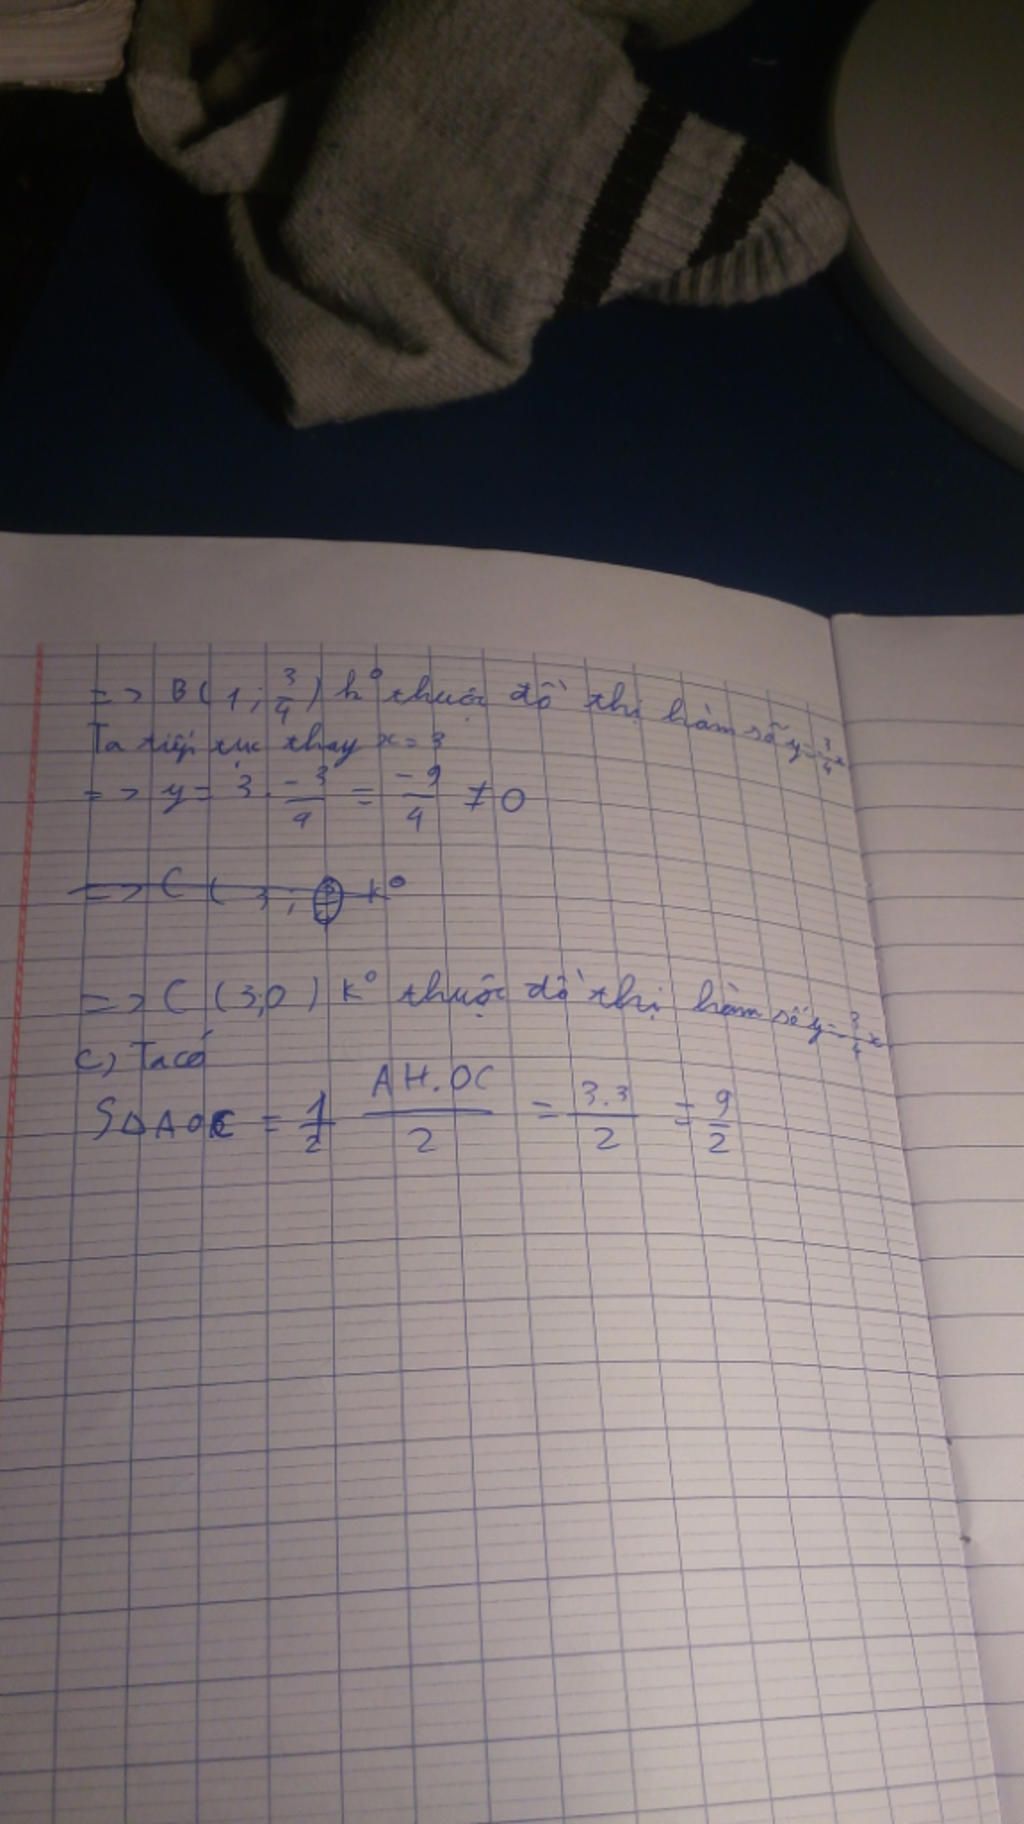 => B(1; 3/4) k° thuộc đồ thị hàm số y = -3/4 x
Ta tiếp tục thay x = 3
=> y = 3. -3/4 = -9/4 ≠ 0
=> C ( 3 ; k°
=> C (3,0) k° thuộc đồ thị hàm số y = -3/4 x
c) Ta có
SΔAOC = 1/2 AH.OC/2 = 3.3/2 = 9/2